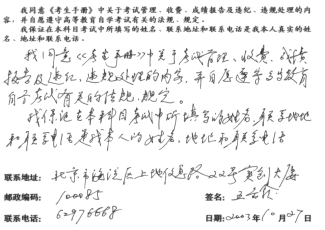 我同意《考生手册》中关于考试管理、收费、成绩报告及违纪、违规处理的内
容，并自愿遵守高等教育自学考试有关的法规、规定。
我保证在本科目考试中所填写的姓名、联系地址和联系电话是我本人真实的姓
名、地址和联系电话。
我同意《考生手册》中关于考试管理、收费、成绩
报告及违纪、违规处理的内容，并自愿遵守高等教育
自学考试有关的法规、规定。
我保证在本科目考试中所填写的姓名、联系地址
和联系电话是我本人的姓名、地址和联系电话
联系地址：北京市海淀区上地信息路22号实创大厦
邮政编码：100085 签名：
联系电话：62976668 日期：2003年10月27日